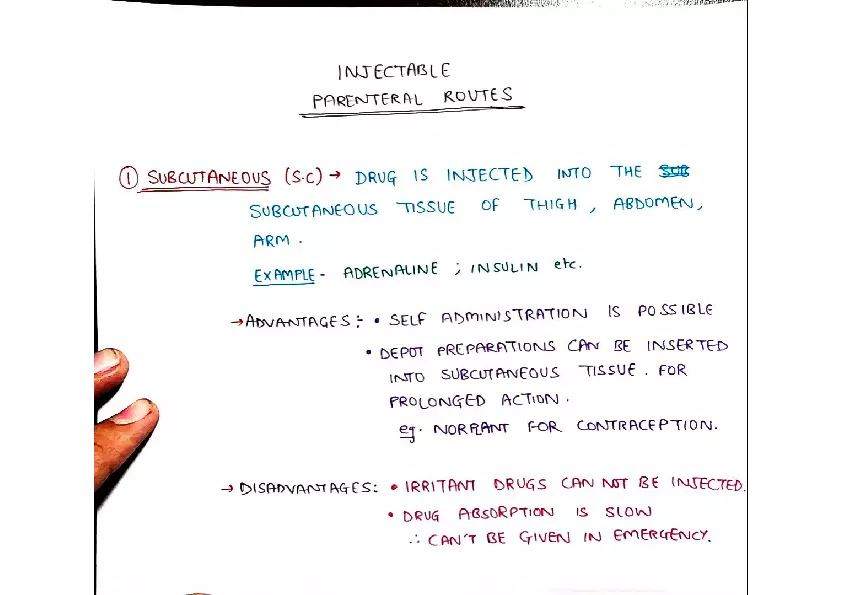 INJECTABLE
PARENTERAL ROUTES
① SUBCUTANEOUS (S.C) → DRUG IS INJECTED INTO THE
SUBCUTANEOUS TISSUE OF THIGH, ABDOMEN,
ARM.
EXAMPLE - ADRENALINE ; INSULIN etc.
→ ADVANTAGES :- • SELF ADMINISTRATION IS POSSIBLE
• DEPOT PREPARATIONS CAN BE INSERTED
INTO SUBCUTANEOUS TISSUE. FOR
PROLONGED ACTION.
eg. NORPLANT FOR CONTRACEPTION.
→ DISADVANTAGES: • IRRITANT DRUGS CAN NOT BE INJECTED.
• DRUG ABSORPTION IS SLOW
∴ CAN'T BE GIVEN IN EMERGENCY.